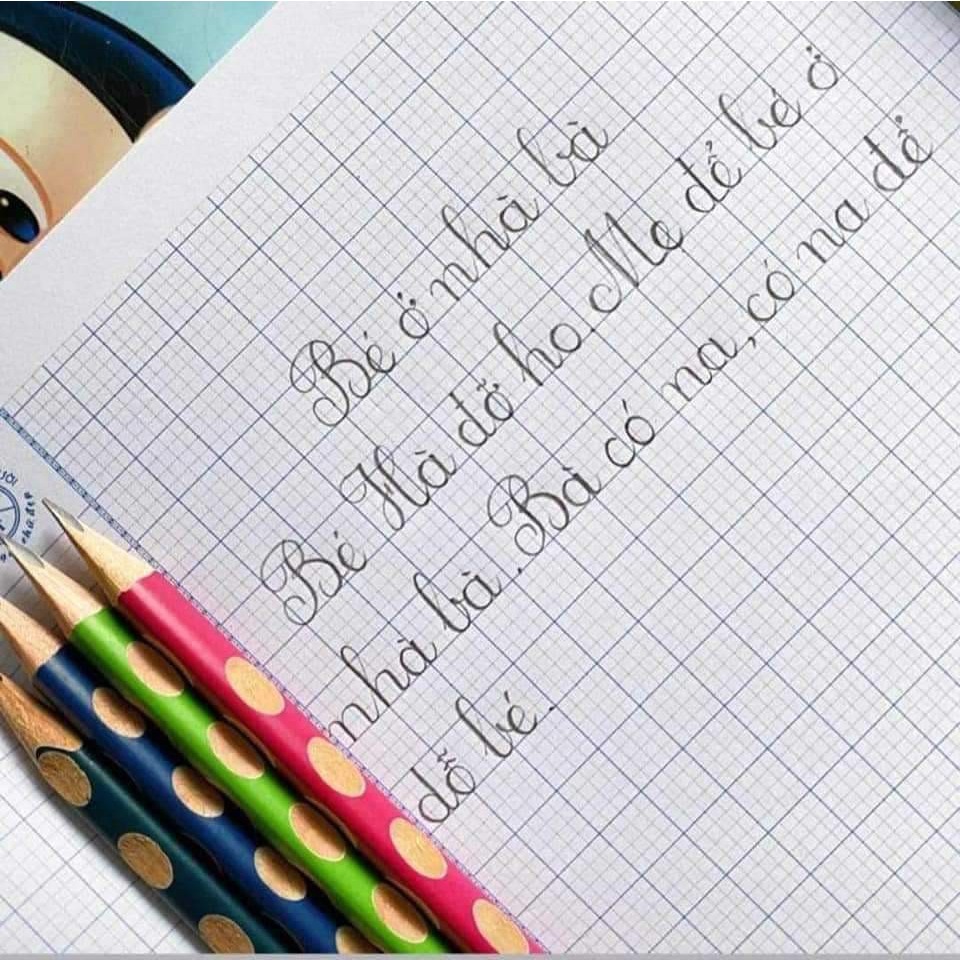 Bé ở nhà bà
Bé Hà đỡ ho. Mẹ để bé ở
nhà bà. Bà có na, có na để
dỗ bé.